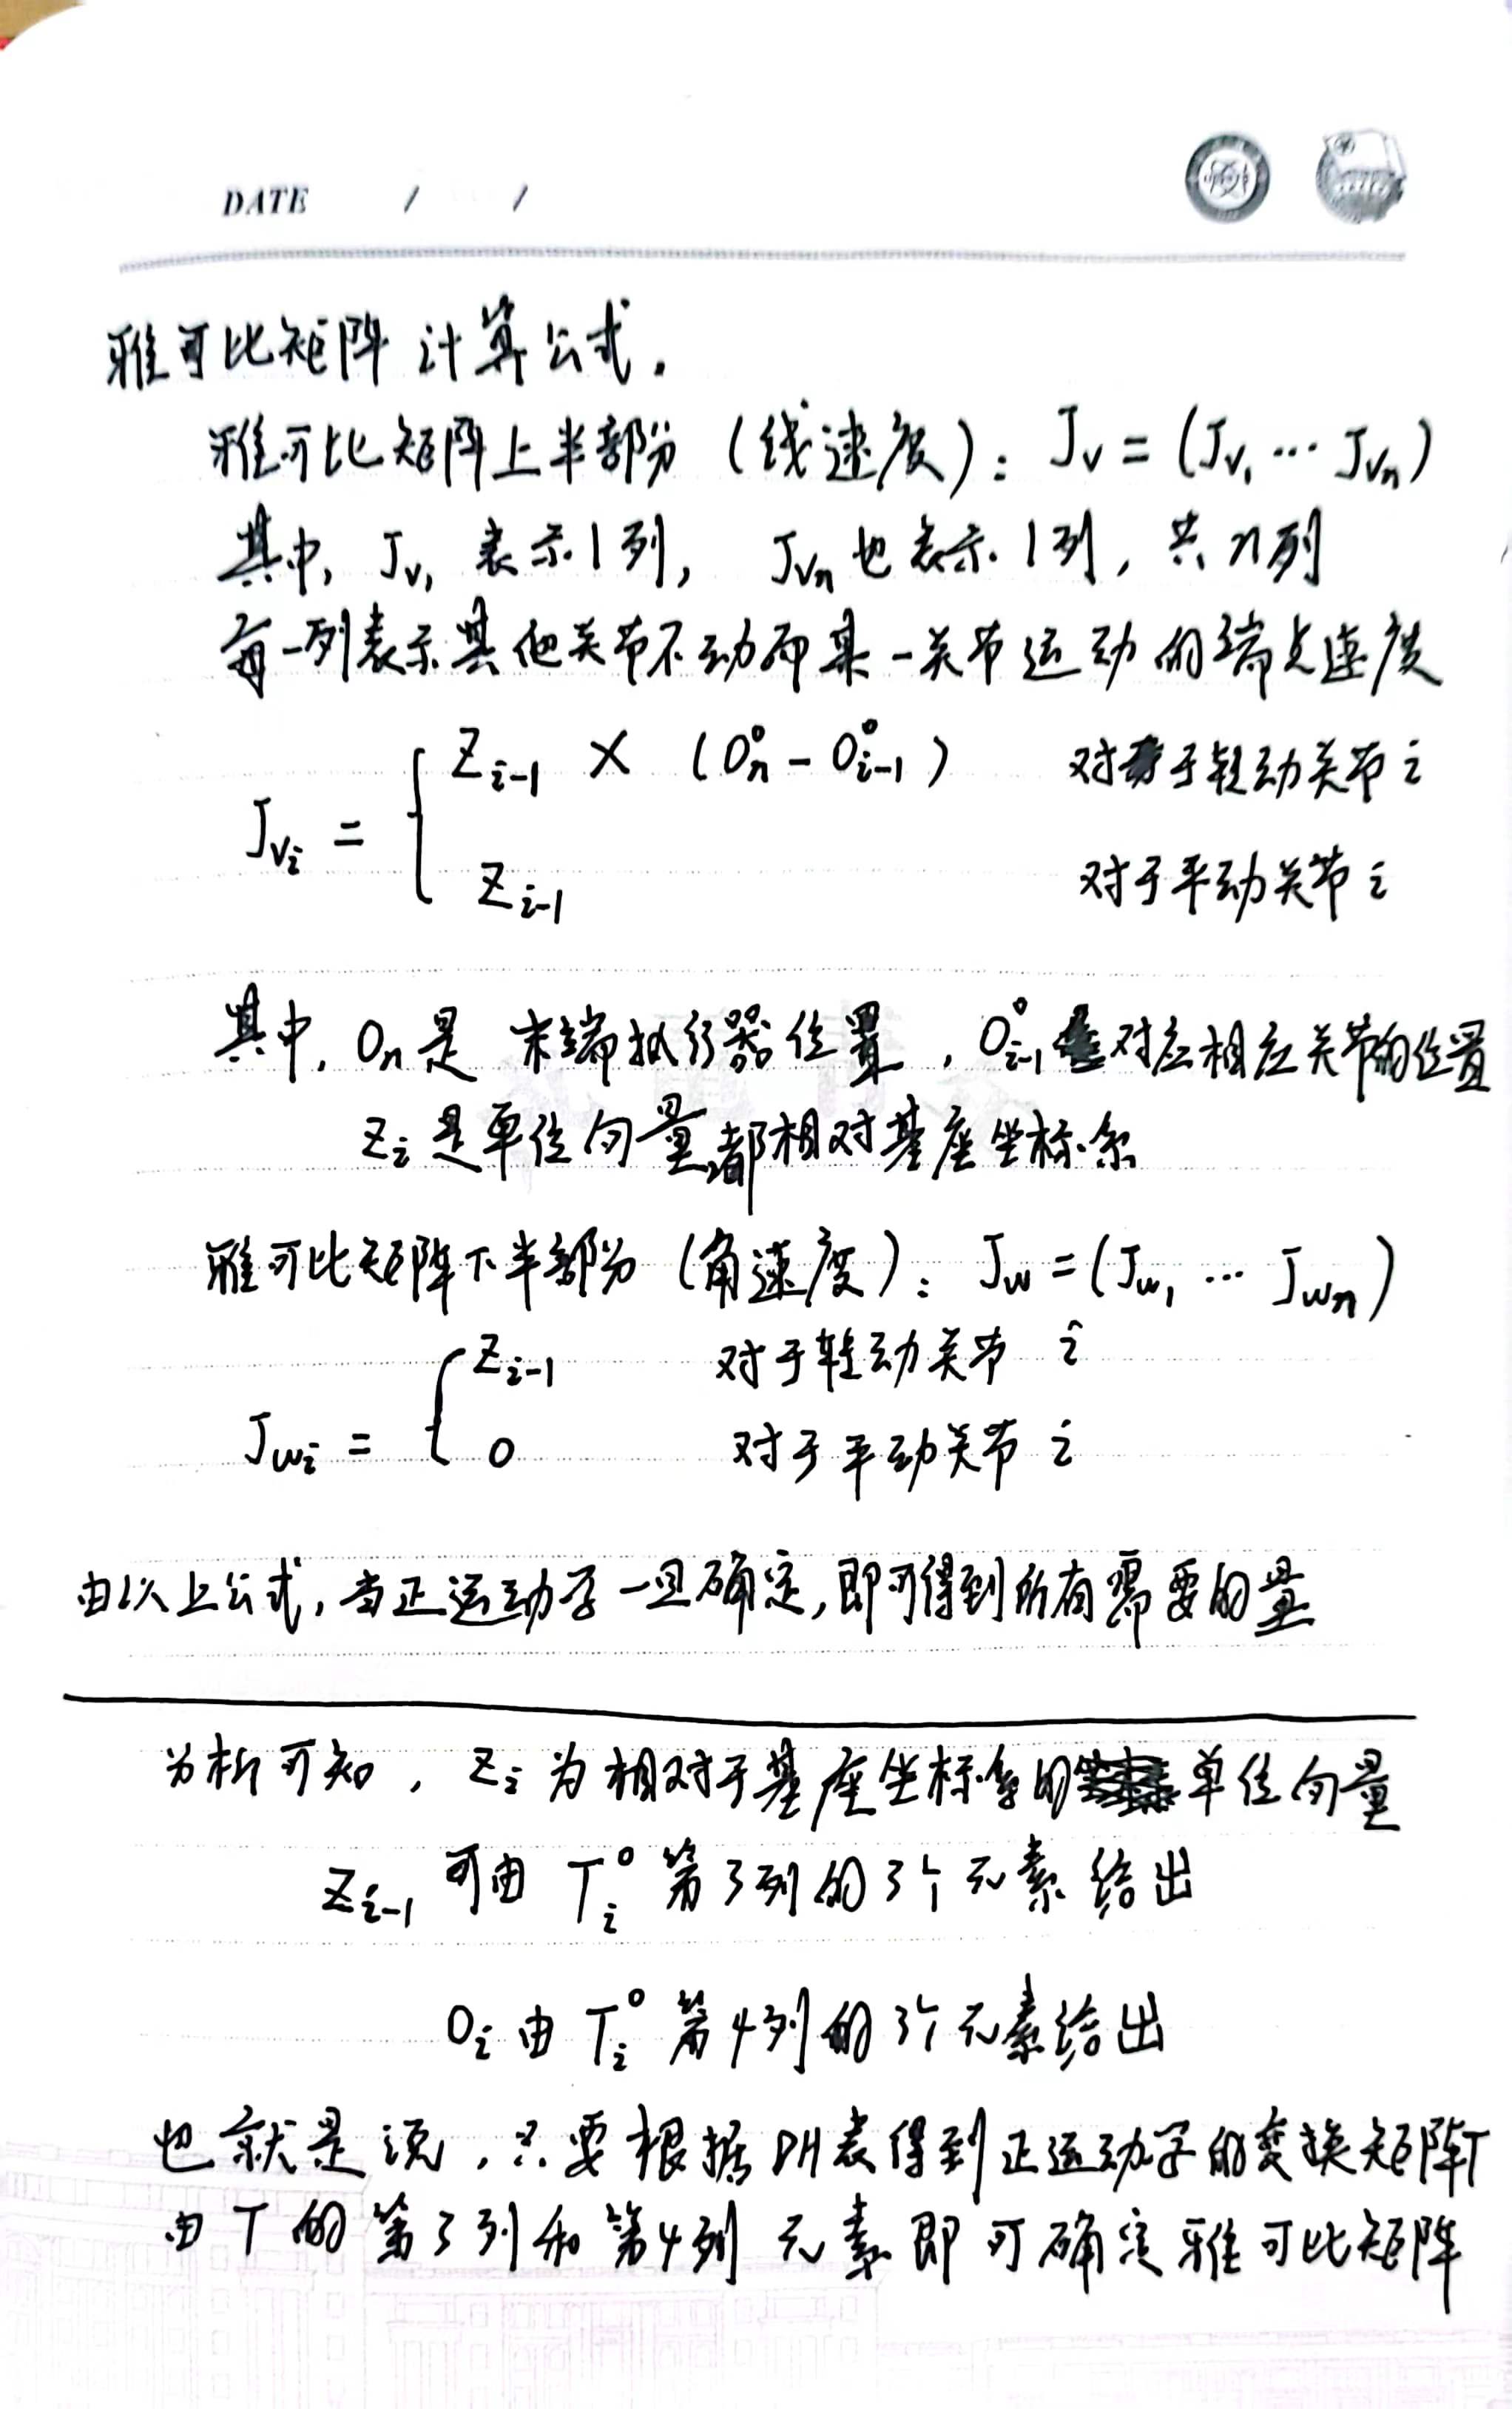 DATE / /
雅可比矩阵计算公式.
雅可比矩阵上半部分（线速度）: J_v = (J_{v_1} ··· J_{v_n})
其中, J_{v_1} 表示1列, J_{v_n} 也表示1列, 共n列
每一列表示其他关节不动而某一关节运动的端点速度
Z_{i-1} × (O_n^0 - O_{i-1}^0) 对于转动关节i
J_{v_i} = {
Z_{i-1} 对于平动关节i
其中, O_n是 末端执行器位置, O_{i-1}^0 对应相应关节的位置
Z_i 是单位向量,都相对基座坐标系
雅可比矩阵下半部分（角速度）: J_w = (J_{w_1} ··· J_{w_n})
Z_{i-1} 对于转动关节 i
J_{w_i} = {
0 对于平动关节 i
由以上公式, 当正运动学一旦确定, 即可得到所有需要的量
分析可知, Z_i 为相对于基座坐标系的单位向量
Z_{i-1} 可由 T_i^0 第3列的3个元素给出
O_i 由 T_i^0 第4列的3个元素给出
也就是说, 只要根据DH表得到正运动学的变换矩阵T
由T的第3列和第4列元素即可确定雅可比矩阵